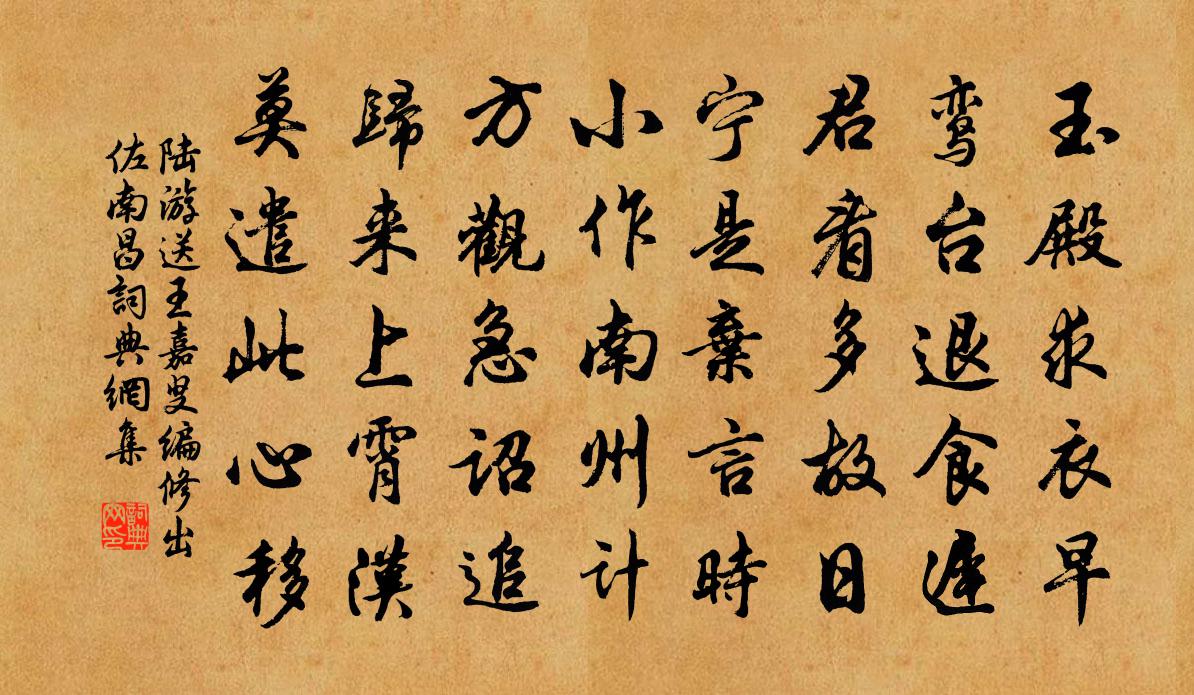 玉殿求衣早
鸾台退食遲
君看多故日
宁是棄言時
小作南州計
方觀急詔追
歸来上霄漢
莫遣此心移
陸游送王嘉叟编修出
佐南昌詞典網集
詞典
网印